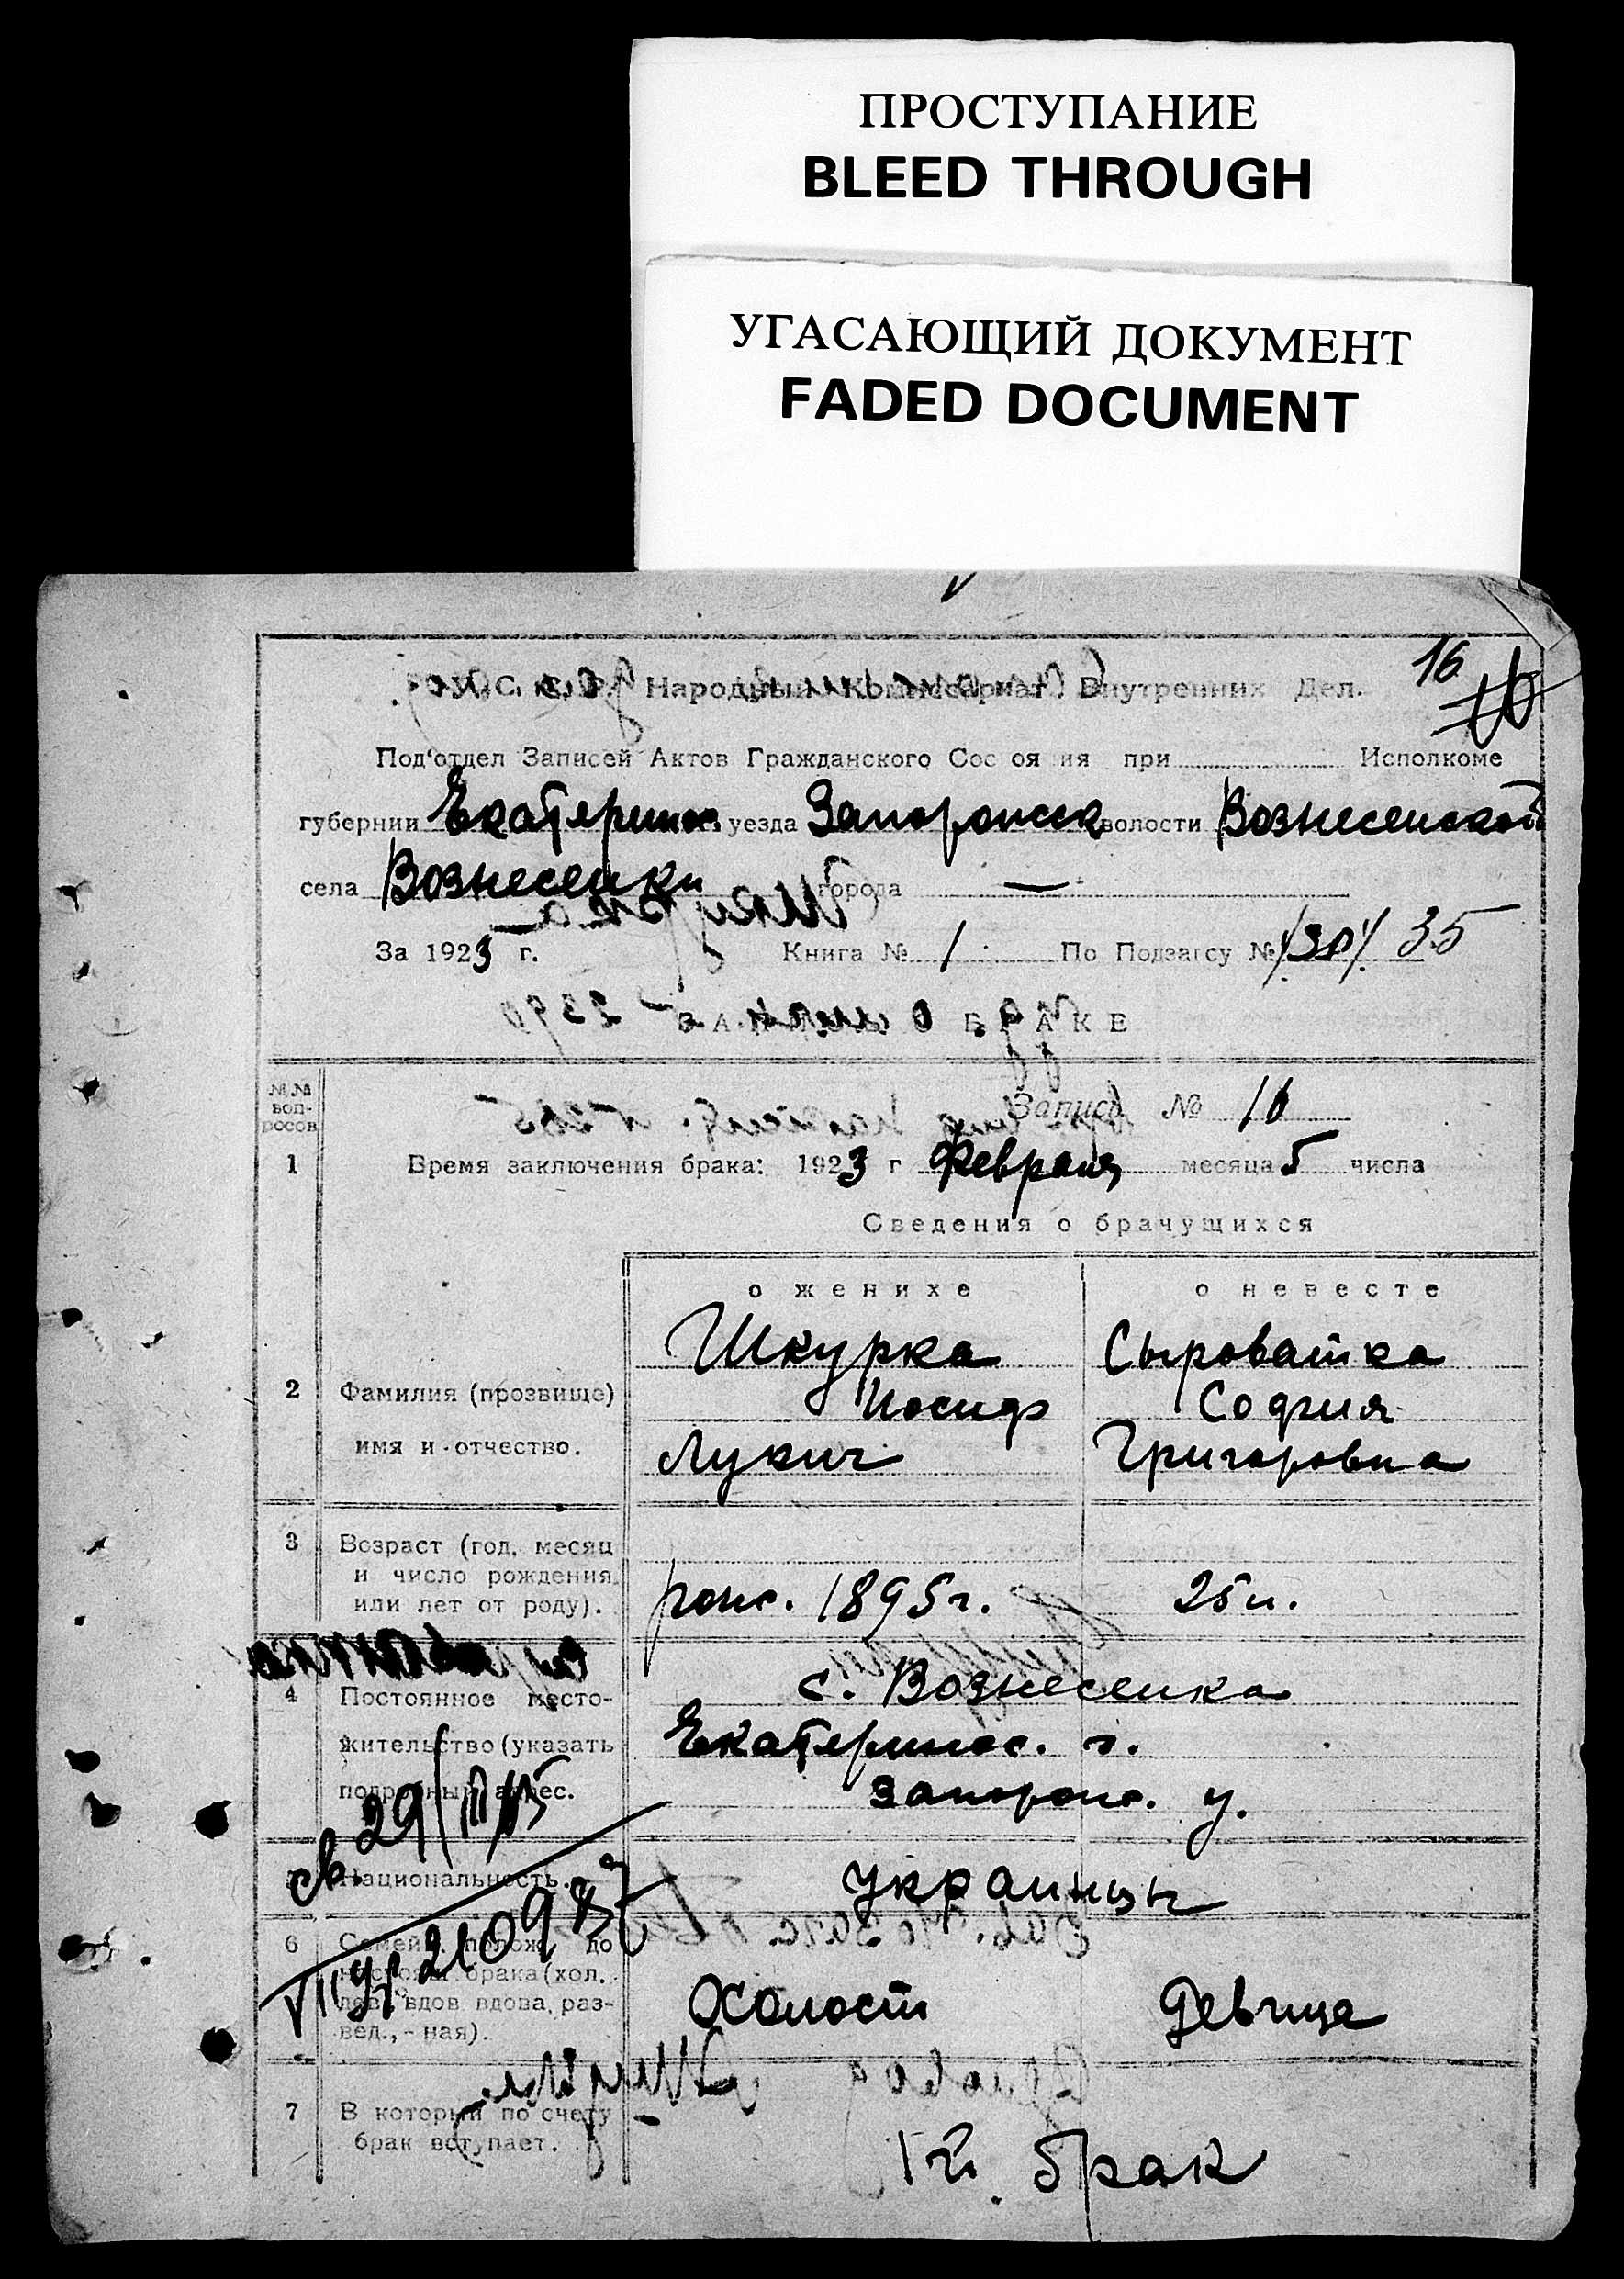 ПРОСТУПАНИЕ
BLEED THROUGH
УГАСАЮЩИЙ ДОКУМЕНТ
FADED DOCUMENT
16
Народный Комиссариат Внутренних Дел.
Под'отдел Записей Актов Гражданского Сос оя ия при Исполкоме
губернии Екатеринос. уезда Запорожск волости Вознесенской
села Вознесенки города —
За 1923 г. Книга № 1 По Подзагсу № 35
О БРАКЕ
№№ воп-росов
Запись № 16
1 Время заключения брака: 1923 г Февраля месяца 5 числа
Сведения о брачущихся
о женихе о невесте
Шкурка Сыроватка
2 Фамилия (прозвище) Иосиф София
имя и отчество. Лукич Григоровна
3 Возраст (год, месяц
и число рождения
или лет от роду). рож. 1895 г. 25 л.
4 Постоянное место- с. Вознесенка
жительство (указать Екатеринос. г.
подробный адрес. Запорож. у.
св. 29/III
Национальность. украинцы
6 Семейн. полож. до
брака (хол.
вдов вдова, раз- Холост Девица
вед., - ная).
7 В который по счету
брак вступает. 1й брак